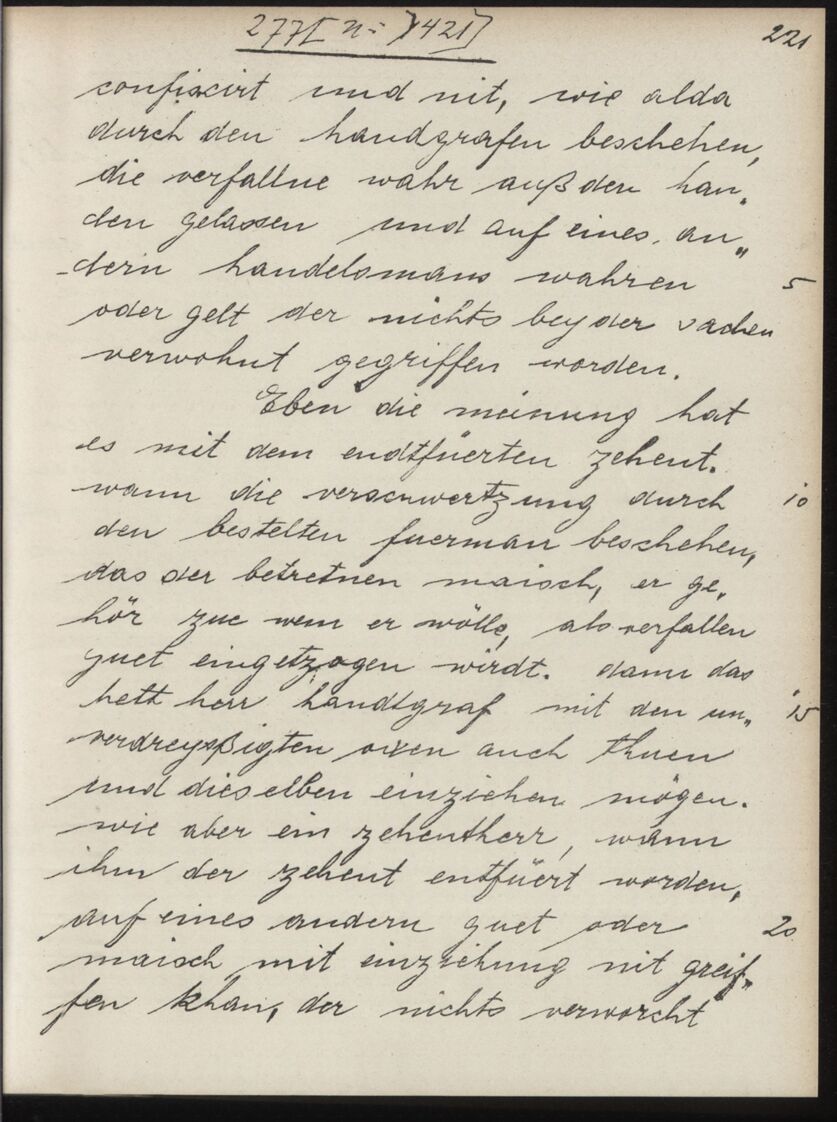 277[ n: )421] 221
confiscirt und nit, wie alda
durch den handgrafen beschehen,
die verfallne wahr auß den han„
den gelassen und auf eines an„
dern handelsmans wahren 5
oder gelt der nichts bey der sachen
verwohnt gegriffen worden.
Eben die meinung hat
es mit dem endtfüerten zehent.
wann die verschwertzung durch 10
den bestelten fuerman beschehen,
das der betretnen maisch, er ge„
hör zue wem er wölle, als verfallen
guet eingetzogen wirdt. dann das
hett herr handtgraf mit den un„ 15
verdreyßigten oxen auch thuen
und dieselben einziehen mögen.
wie aber ein zehentherr, wann
ihm der zehent entfüert worden,
auf eines andern guet oder 20
maisch mit einziehung nit greif„
fen khan, der nichts verworcht